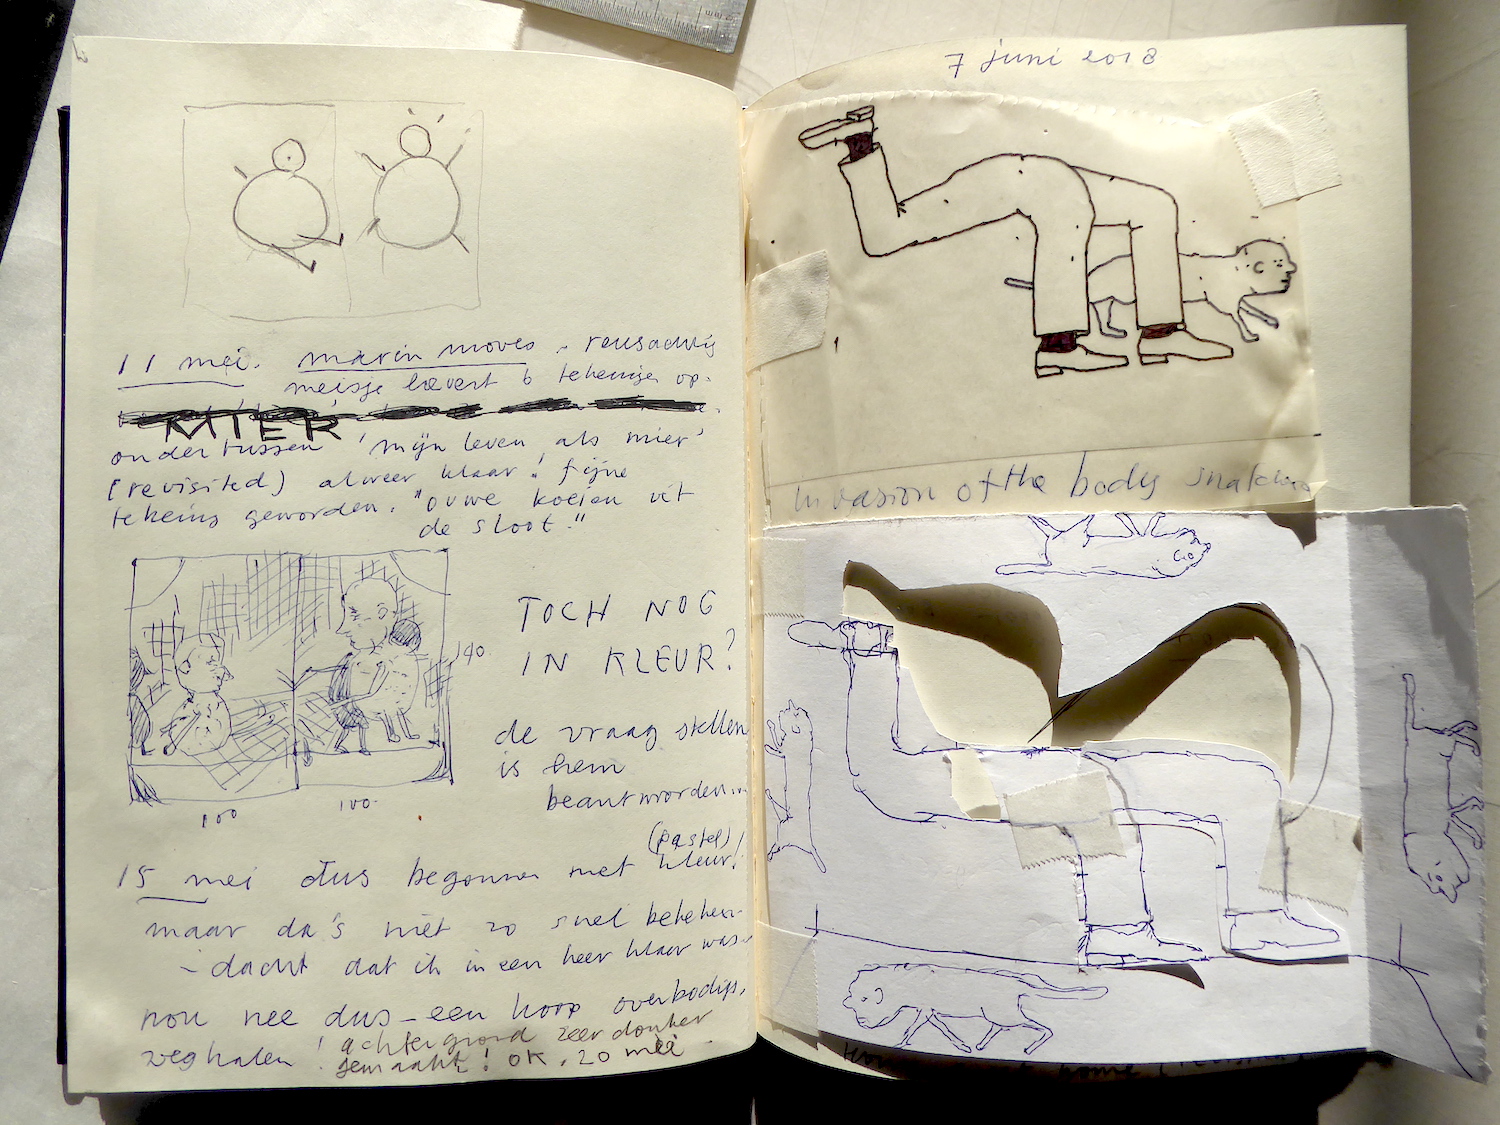 11 mei. marin moves - reusachtig
meisje levert 6 tekeningen op.
MIER
ondertussen 'mijn leven als mier'
(revisited) alweer klaar! fijne
tekening geworden. "ouwe koeien uit
de sloot."
140
100 100
TOCH NOG
IN KLEUR?
de vraag stellen
is hem
beantwoorden...
(pastel)
15 mei dus begonnen met kleur!
maar da's niet zo snel
- dacht dat ik in een keer klaar was -
nou nee dus - een hoop overbodigs
weghalen! achtergrond zeer donker
gemaakt! OK. 20 mei
7 juni 2018
invasion of the body snatchers